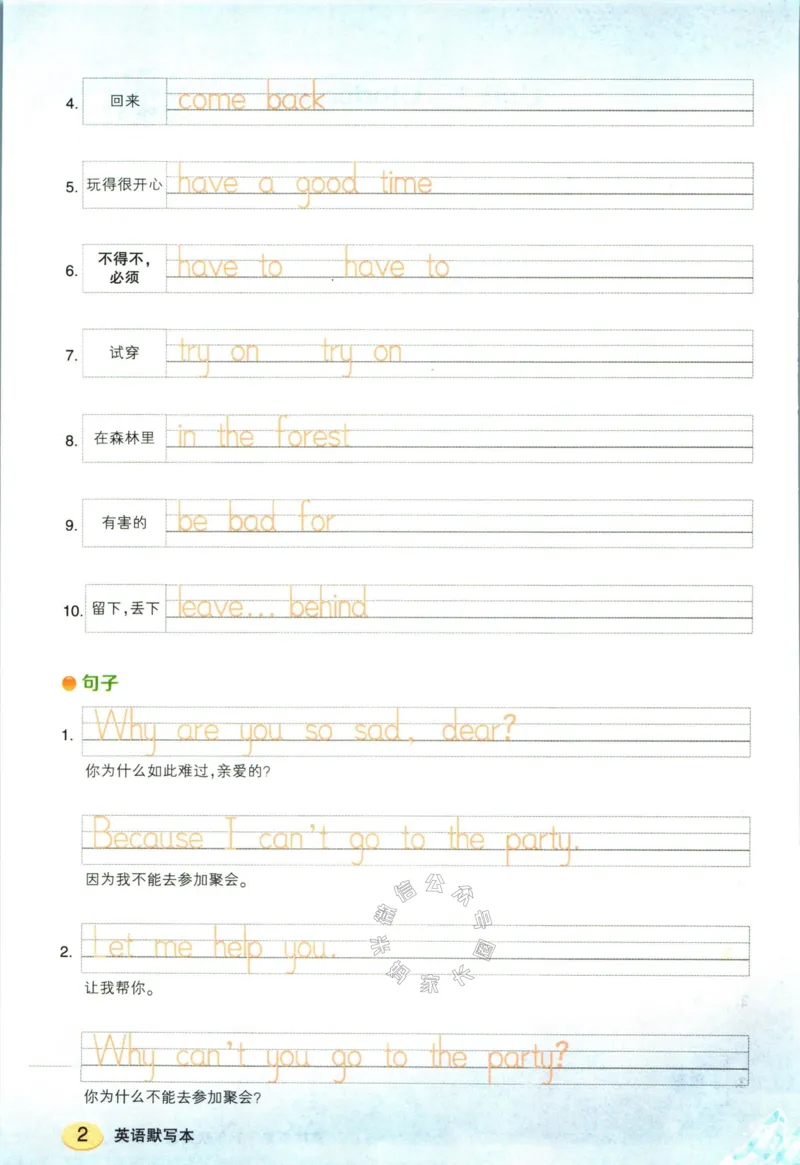 4. 回来 come back
5. 玩得很开心 have a good time
6. 不得不，必须 have to have to
7. 试穿 try on try on
8. 在森林里 in the forest
9. 有害的 be bad for
10. 留下，丢下 leave... behind
句子
1. Why are you so sad, dear?
你为什么如此难过，亲爱的?
Because I can't go to the party.
因为我不能去参加聚会。
2. Let me help you.
让我帮你。
Why can't you go to the party?
你为什么不能去参加聚会?
2 英语默写本